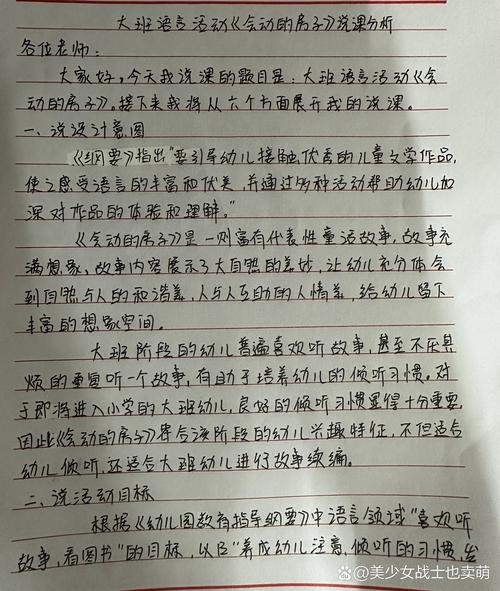 大班语言活动《会动的房子》说课分析
各位老师:
大家好,今天我说课的题目是:大班语言活动《会
动的房子》。接下来我将从六个方面展开我的说课。
一、说设计意图
《纲要》指出"要引导幼儿接触优秀的儿童文学作品,
使之感受语言的丰富和优美,并通过多种活动帮助幼儿加
深对作品的体验和理解。"
《会动的房子》是一则富有代表性童话故事,故事充
满想象,故事内容展示了大自然的美妙,让幼儿充分体会
到自然与人的和谐美,人与人互助的人情美,给幼儿留下
丰富的想象空间。
大班阶段的幼儿普遍喜欢听故事,甚至不厌其
烦的重复听一个故事,有助于培养幼儿的倾听习惯。对
于即将进入小学的大班幼儿,良好的倾听习惯显得十分重要,
因此《会动的房子》符合该阶段的幼儿兴趣特征,不但适合
幼儿倾听,还适合大班幼儿进行故事续编。
二、说活动目标
根据《幼儿园教育指导纲要》中语言领域"喜欢听
故事,看图书"的目标,以及"养成幼儿注意倾听的习惯,发
知乎 @美少女战士也卖萌